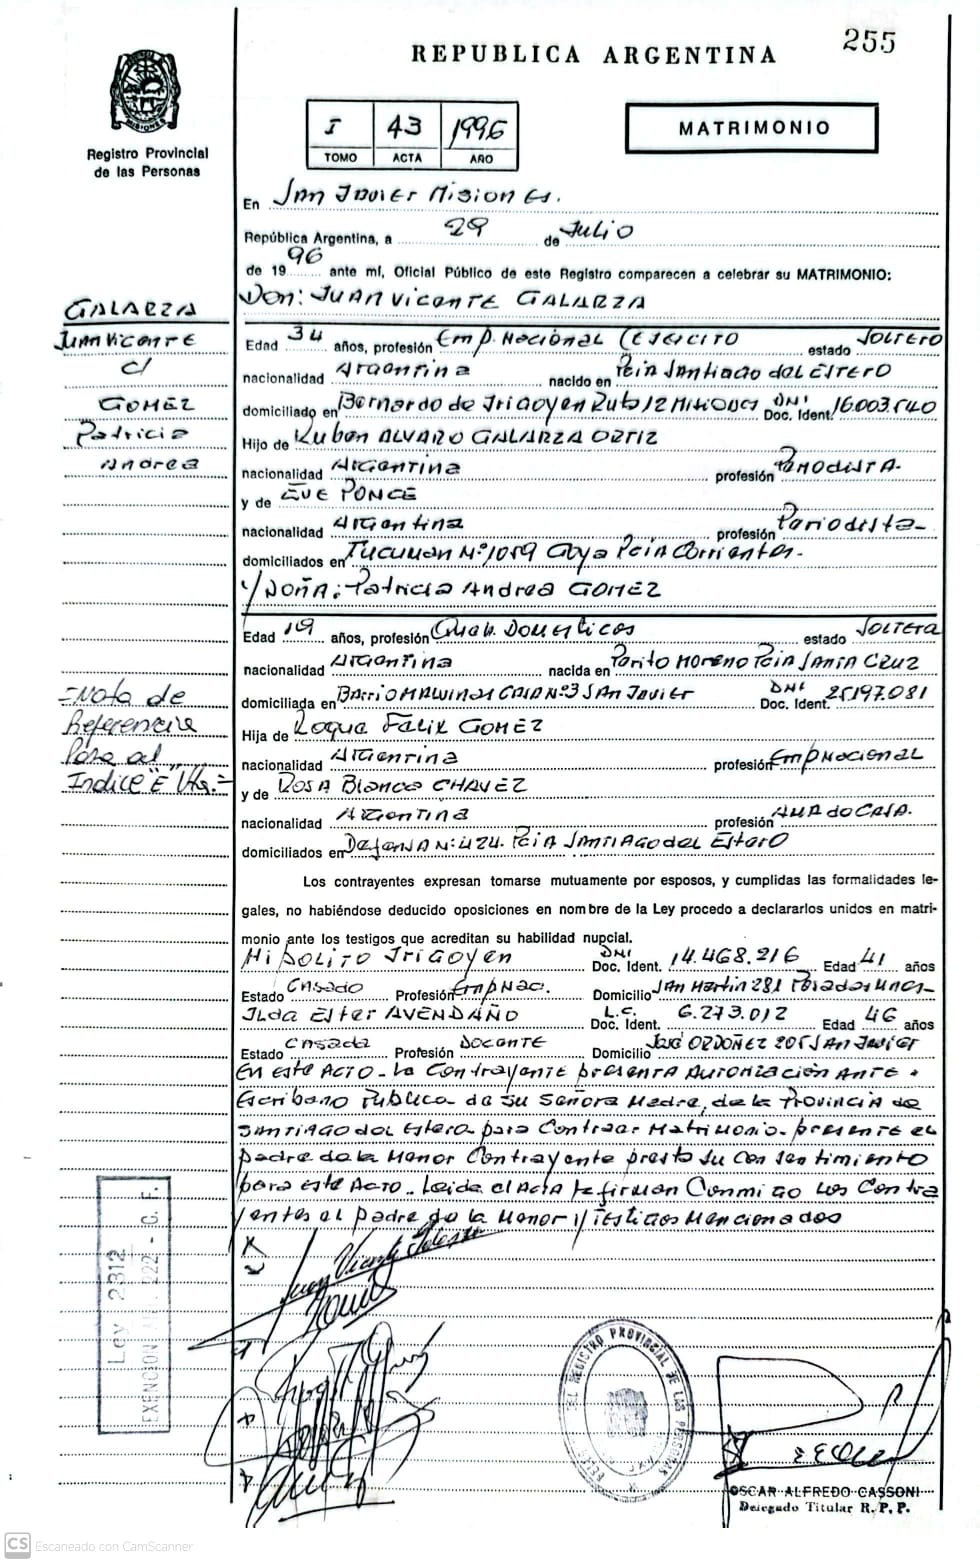 255
REPUBLICA ARGENTINA
I 43 1996
TOMO ACTA AÑO
MATRIMONIO
MISIONES
Registro Provincial
de las Personas
En San Javier Misiones.
República Argentina, a 29 de Julio
de 1996 ante mí, Oficial Público de este Registro comparecen a celebrar su MATRIMONIO:
Don: Juan Vicente GALARZA
Edad 34 años, profesión Emp. Nacional (Ejercito estado Soltero
nacionalidad Argentina nacido en Pcia Santiago del Estero
domiciliado en Bernardo de Irigoyen Ruta 12 Misiones DNI Doc. Ident. 16.003.540
Hijo de Ruben ALVARO GALARZA ORTIZ
nacionalidad Argentina profesión Periodista-
y de EVE PONCE
nacionalidad Argentina profesión Periodista-
domiciliados en Tucuman Nº 1059 Goya Pcia Corrientes-
y DOÑA: Patricia Andrea GOMEZ
Edad 19 años, profesión Queh. Domesticos estado Soltera
nacionalidad Argentina nacida en Perito Moreno Pcia Santa Cruz
domiciliada en Barrio Malvinas Casa Nº3 San Javier DNI Doc. Ident. 25197.081
Hija de Roque Felix GOMEZ
nacionalidad Argentina profesión Emp Nacional
y de Rosa Blanca CHAVEZ
nacionalidad Argentina profesión AMA de CASA.
domiciliados en Defensa Nº: 424. Pcia Santiago del Estero
Los contrayentes expresan tomarse mutuamente por esposos, y cumplidas las formalidades le-
gales, no habiéndose deducido oposiciones en nombre de la Ley procedo a declararlos unidos en matri-
monio ante los testigos que acreditan su habilidad nupcial.
Hipolito Irigoyen DNI Doc. Ident. 14.468.216 Edad 41 años
Estado Casado Profesión Emp Nac. Domicilio San Martin 281 Posadas
Ilda Ester AVENDAÑO L.C. Doc. Ident. 6.273.012 Edad 46 años
Estado Casada Profesión Docente Domicilio José ORDOÑEZ 205 San Javier
En este Acto- la Contrayente presenta Autorización Ante
Escribano Publica de su Señora Madre, de la Provincia de
Santiago del Estero para Contraer Matrimonio- presente el
padre de la Menor Contrayente presto su Consentimiento
para este Acto.. Leida el Acta la firman Conmigo los Contra
yentes el padre de la Menor y Testigos Mencionados
GALARZA
Juan Vicente
c/
GOMEZ
Patricia
Andrea
=Nota de
Referencia
Para el
Indice "E" Vta.=
Ley 2312
DEL REGISTRO PROVINCIAL DE LAS PERSONAS
OSCAR ALFREDO CASSONI
Delegado Titular R. P. P.
CS Escaneado con CamScanner